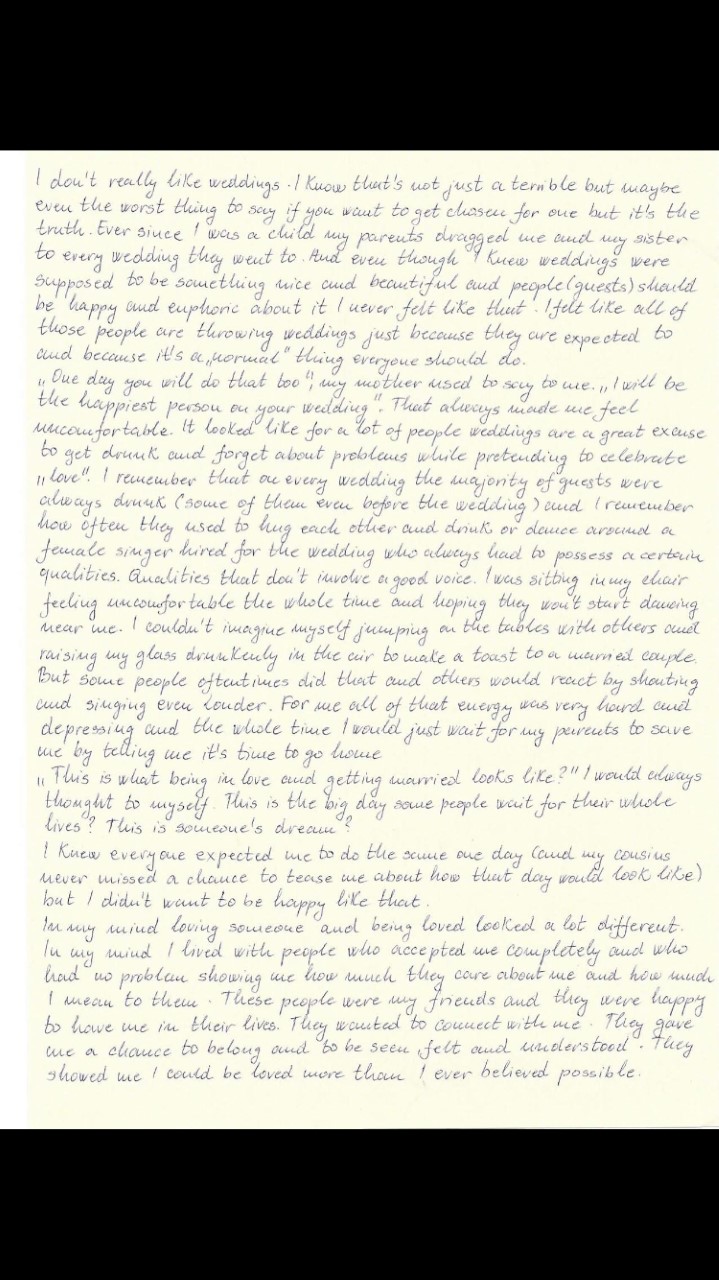 I don't really like weddings. I know that's not just a terrible but maybe
even the worst thing to say if you want to get chosen for one but it's the
truth. Ever since I was a child my parents dragged me and my sister
to every wedding they went to. And even though I knew weddings were
supposed to be something nice and beautiful and people (guests) should
be happy and euphoric about it I never felt like that. I felt like all of
those people are throwing weddings just because they are expected to
and because it's a „normal" thing everyone should do.
„One day you will do that too", my mother used to say to me. „I will be
the happiest person on your wedding". That always made me feel
uncomfortable. It looked like for a lot of people weddings are a great excuse
to get drunk and forget about problems while pretending to celebrate
„love". I remember that on every wedding the majority of guests were
always drunk (some of them even before the wedding) and I remember
how often they used to hug each other and drink or dance around a
female singer hired for the wedding who always had to possess a certain
qualities. Qualities that don't involve a good voice. I was sitting in my chair
feeling uncomfortable the whole time and hoping they won't start dancing
near me. I couldn't imagine myself jumping on the tables with others and
raising my glass drunkenly in the air to make a toast to a married couple.
But some people oftentimes did that and others would react by shouting
and singing even louder. For me all of that energy was very hard and
depressing and the whole time I would just wait for my parents to save
me by telling me it's time to go home
„This is what being in love and getting married looks like?" I would always
thought to myself. This is the big day some people wait for their whole
lives? This is someone's dream?
I knew everyone expected me to do the same one day (and my cousins
never missed a chance to tease me about how that day would look like)
but I didn't want to be happy like that.
In my mind loving someone and being loved looked a lot different.
In my mind I lived with people who accepted me completely and who
had no problem showing me how much they care about me and how much
I mean to them. These people were my friends and they were happy
to have me in their lives. They wanted to connect with me. They gave
me a chance to belong and to be seen, felt and understood. They
showed me I could be loved more than I ever believed possible.